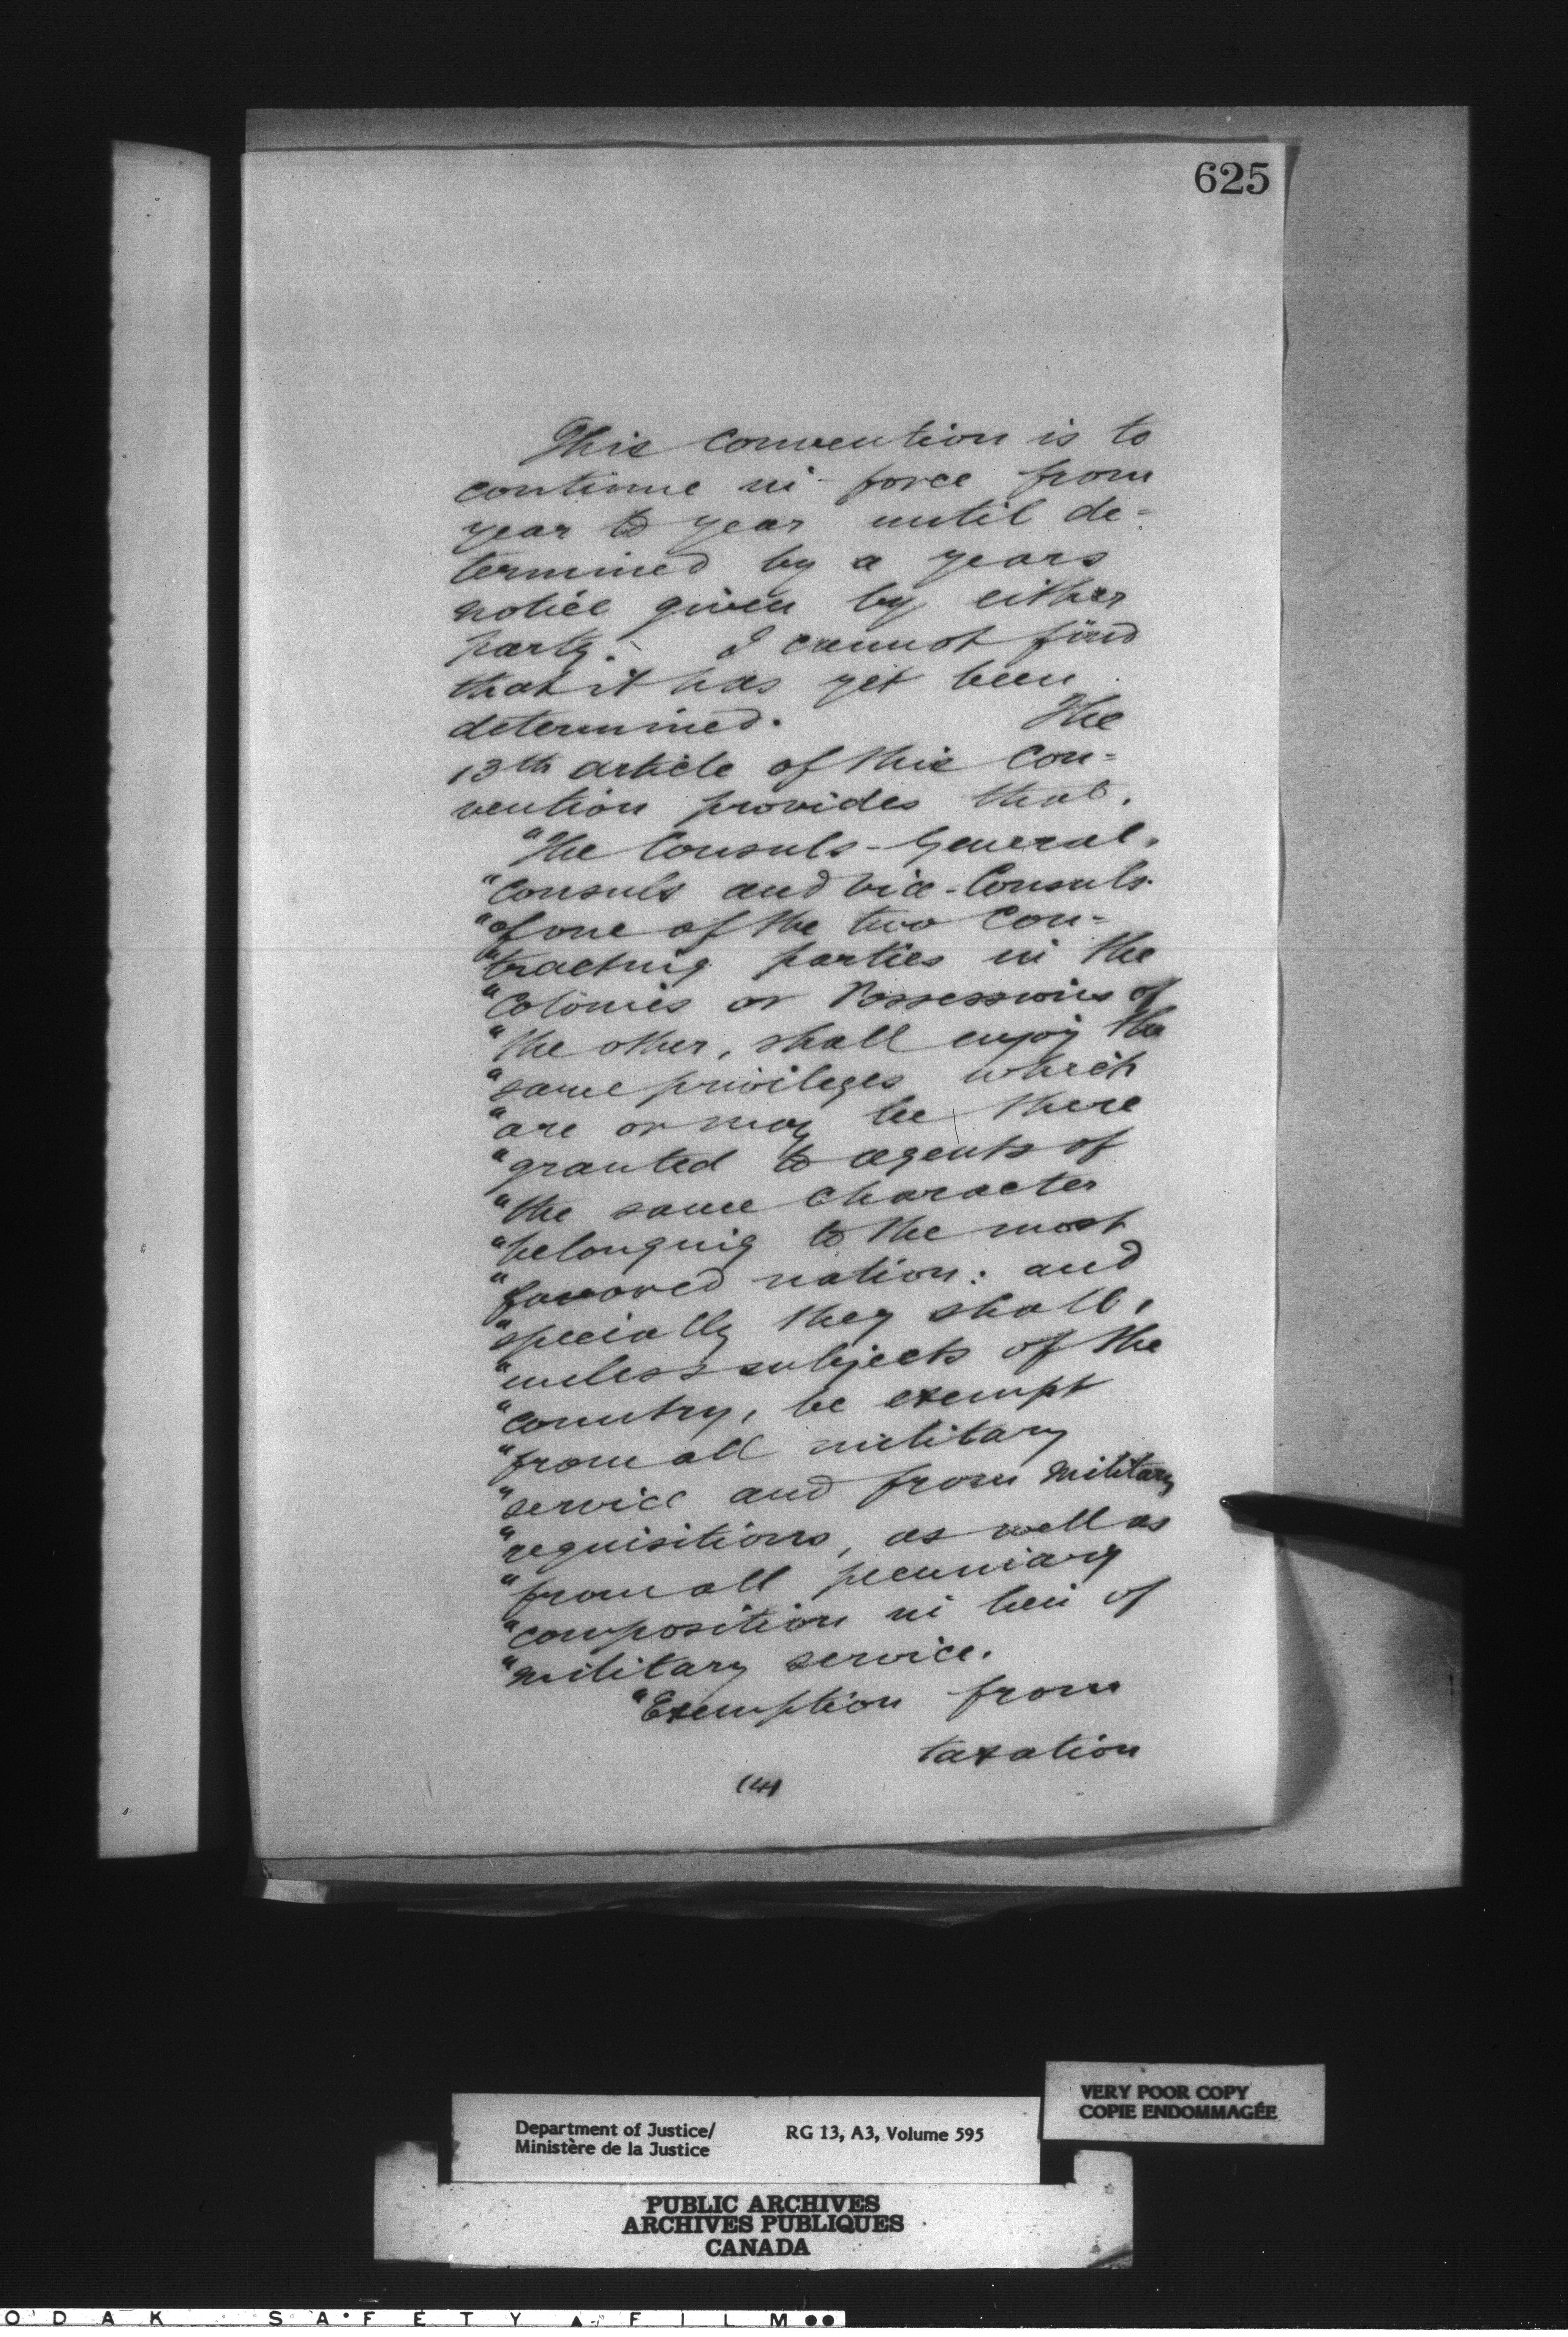 625
This convention is to
continue in force from
year to year until de=
termined by a years
notice given by either
party. I cannot find
that it has yet been
determined. The
13th article of this Con=
vention provides that.
"The Consuls-General,
"Consuls and Vice-Consuls
"of one of the two Con=
"tracting parties in the
"Colonies or Possessions of
"the other, shall enjoy the
"same privileges which
"are or may be there
"granted to agents of
"the same Character
"belonging to the most
"favored nation: and
"specially they shall,
"unless subjects of the
"country, be exempt
"from all military
"service and from military
"requisitions, as well as
"from all pecuniary
"composition in lieu of
"military service.
"Exemption from
taxation
(4)
VERY POOR COPY
COPIE ENDOMMAGÉE
Department of Justice/ RG 13, A3, Volume 595
Ministère de la Justice
PUBLIC ARCHIVES
ARCHIVES PUBLIQUES
CANADA
O D A K S A F E T Y F I L M